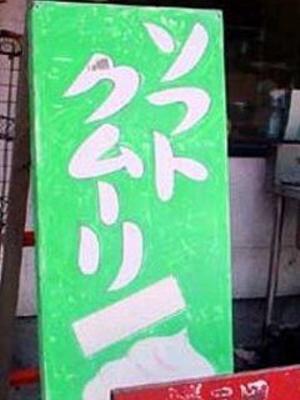 ソフト
クムーリ